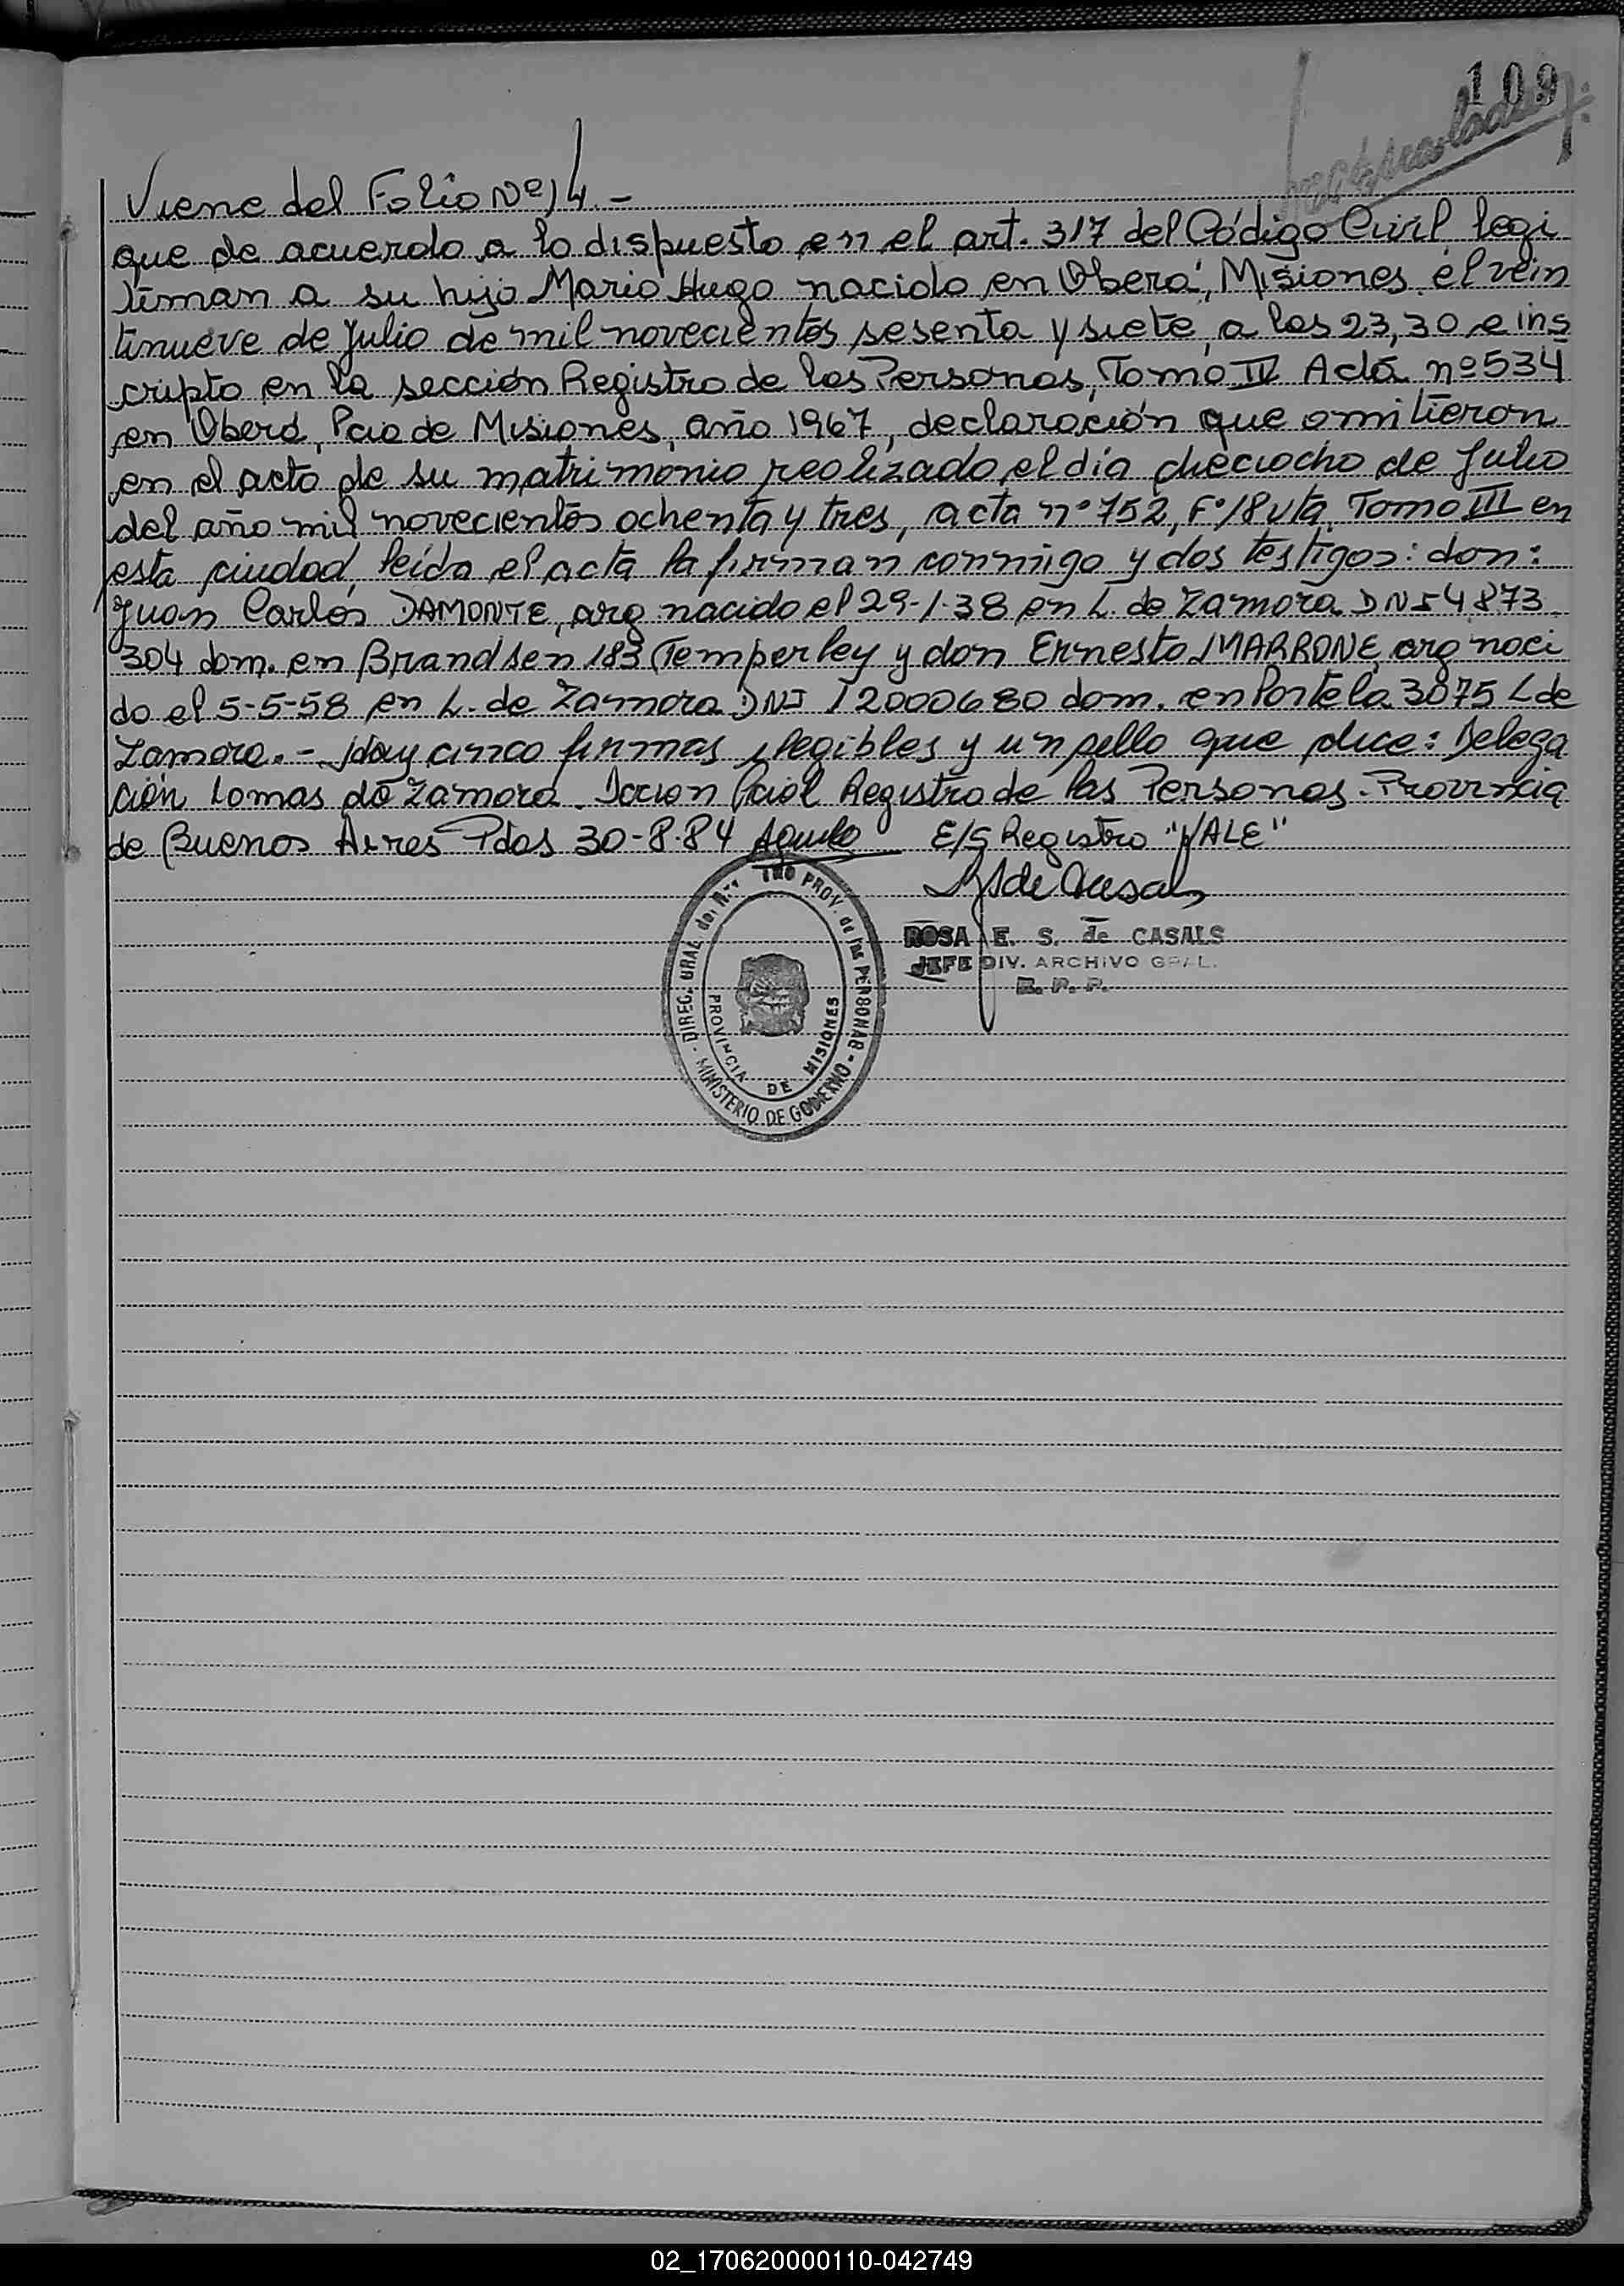 109
Viene del Folio Nº 14.-
que de acuerdo a lo dispuesto en el art. 317 del Código Civil, legi
timan a su hijo Mario Hugo nacido en Oberá, Misiones el vein
tinueve de Julio de mil novecientos sesenta y siete, a las 23,30 e ins
cripto en la sección Registro de las Personas, Tomo IV Acta nº 534
en Oberá, Pcia de Misiones, año 1967, declaración que omitieron
en el acto de su matrimonio realizado el día dieciocho de Julio
del año mil novecientos ochenta y tres, acta nº 752, Fº 18 vta, Tomo III en
esta ciudad, leída el acta la firman conmigo y dos testigos: don:
Juan Carlos DAMONTE, arg nacido el 29-1-38 en L. de Zamora DNI 4873
304 dom. en Brandsen 183 Temperley y don Ernesto MARRONE, arg naci
do el 5-5-58 en L. de Zamora DNI 12000680 dom. en Portela 3075 L de
Zamora.- Hay cinco firmas ilegibles y un sello que dice: Delega
ción Lomas de Zamora. Dccion Pcial Registro de las Personas. Provincia
de Buenos Aires Pdas 30-8-84 E/S Registro "VALE"
ROSA E. S. de CASALS
JEFE DIV. ARCHIVO GRAL.
R. P. P.
DIREC. GRAL. PROV. de las PERSONAS - MINISTERIO DE GOBIERNO -
PROVINCIA DE MISIONES
02_170620000110-042749